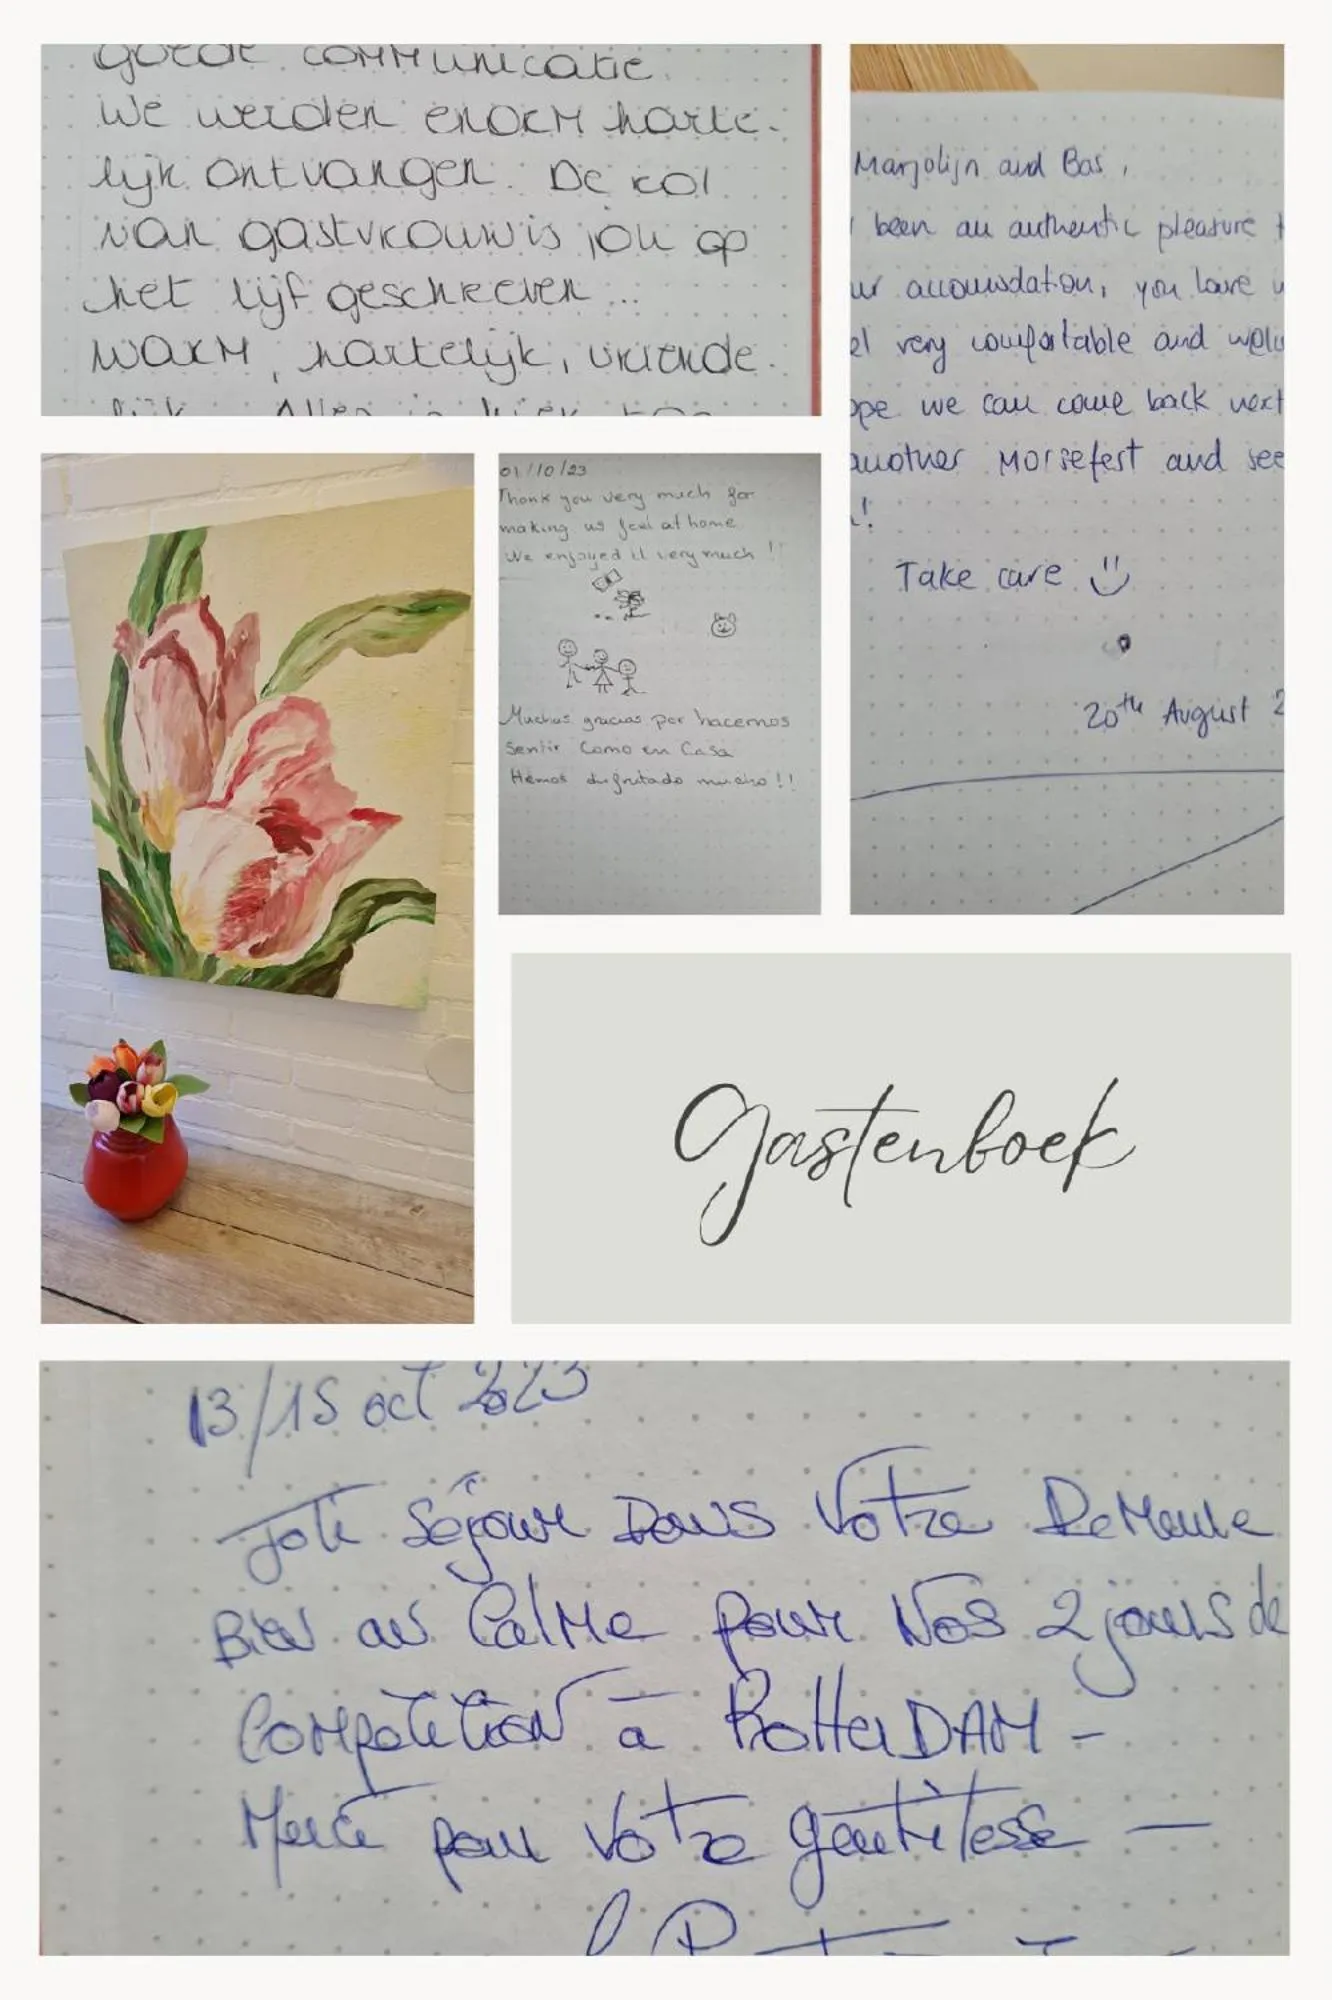 goede communicatie.
We werden enorm harte-
lijk ontvangen. De rol
van gastvrouw is jou op
het lijf geschreven...
warm, hartelijk, vriende-
lijk. Alles is hier
Marjolijn and Bas,
been an authentic pleasure
ur accomodation, you have
el very comfortable and welc
ope we can come back next
another Morsefest and see
!
Take care
20th August 2
01/10/23
Thank you very much for
making us feel at home.
We enjoyed it very much!!
Muchas gracias por hacernos
Sentir Como en Casa
Hemos disfrutado mucho!!
Gastenboek
13/15 oct 2023
Joli Séjour Dans Votre Demeure
Bien au Calme pour Nos 2 jours de
Compétition à RotterDAM -
Merci pour Votre gentillesse -